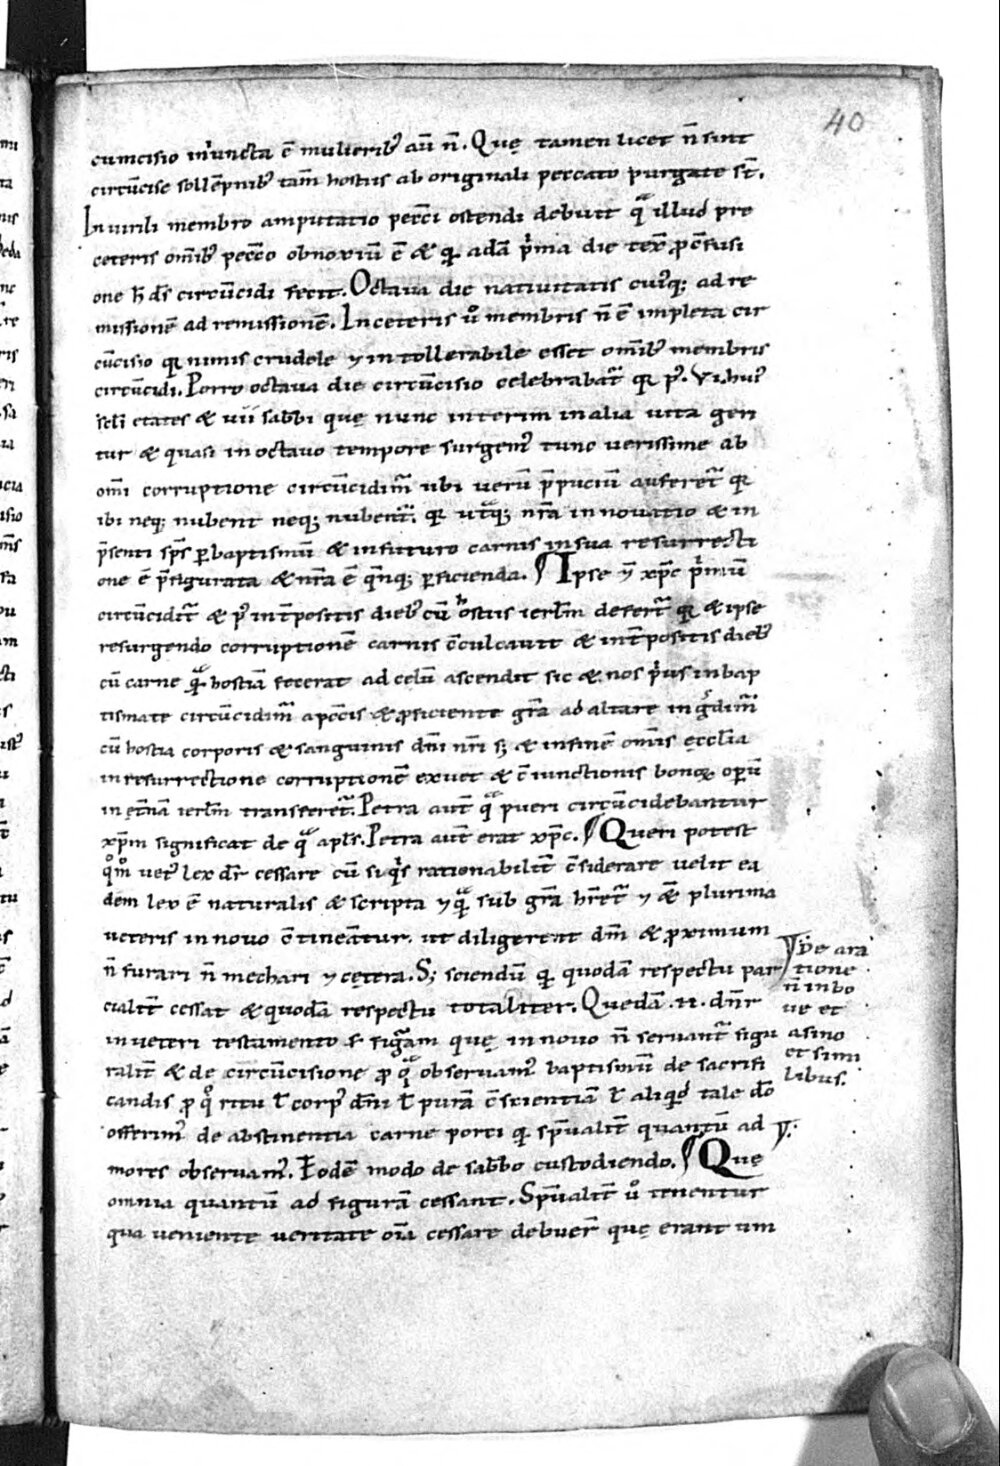 40
cumcisio iniuncta ē mulierib; aū n̄. Quę tamen licet n̄ sint
circūcise sollēpnib; tam̄ hostiis ab originali peccato purgate sт̄.
In virili membro amputatio pecci ostendi debuit qͣ illud pre
ceteris om̄ib; pecc̄o obnoxiū ē & qͥ adā pͥma die
one h̄ dr̄ circūcidi fecit. Octaua die natiuitatis cuiꝰq; ad re
missionē ad remissionē. In ceteris ů membris n̄ ē impleta cir
cūcisio qͥ nimis crudele ⁊ intollerabile esset om̄ib; membris
circūcidi. Porro octaua die circūcisio celebrabat᷑ qͥ pꝰ. vi. huiꝰ
sc̄li etates & vii sabb̄i quę nunc interim in alia uita geri
tur & quasi in octauo tempore surgemꝰ tunc uerissime ab
om̄i corruptione circūcidim᷑ ubi uerū p̄puciū auferet᷑ qͥ
ibi neq; nubent neq; nubent᷑. qͥ utͣq; nr̄a innouatio & in
p̄senti sp̄s ꝑ baptismū & in futuro carnis in sua resurrecti
one ē p̄figurata & nr̄a ē perficienda. ¶ Ipse xp̄c pͥmū
circūcidit᷑ & pꝰ int̄positis dieb; cū hostiis ierl̄m defert᷑ qͥ & ipse
resurgendo corruptionē carnis c̄culcauit & int̄positis dieb;
cū carne qͣ hostiā fecerat ad celū ascendit sic & nos pͥus in bap
tismate circūcidim᷑ a pecc̄is & ꝓficiente gr̄a ad altare ingͣdim᷑
cū hostia corporis & sanguinis dn̄i nr̄i s; & in finē om̄is ęccl̄ia
in resurrectione corruptionē exuet & c̄iunctionis bonoꝝ opū
in ęt̄nā ierl̄m transferet᷑. Petra aut̄ qͣ pueri circūcidebantur
xp̄m significat de qͣ apl̄s. Petra aut̄ erat xp̄c. ¶ Queri potest
qͦm uetꝰ lex dr̄ cessare cū si qͥs rationabilit̄ c̄siderare uelit ea
dem lex ē naturalis & scripta ⁊ qͣ sub gr̄a hr̄et᷑ ⁊ & plurima
ueteris in nouo c̄tineāntur. ut diligerent dm̄ & ꝓximum
n̄ furari n̄ mechari ⁊ cętera. S; sciendū qͥ quodā respectu par
cialit̄ cessat & quodā respectu totaliter. Quedā .n. dn̄r
in ueteri testamento s figᷓam quę in nouo n̄ seruant᷑ figu
ralit̄ & de circūcisione ꝓ qͣ obseruamꝰ baptismū de sacrifi
candis ꝓ qͦ ritu l̄ corpꝰ dn̄i l̄ purā c̄scientiā l̄ aliqͥd tale dō
offerimꝰ de abstinentia carne porci qͥ sp̄ualit̄ quantū ad
mores obseruamꝰ. Eodē modo de sabb̄o custodiendo. ¶ Quę
omnia quantū ad figurā cessant. Sp̄ualit̄ ů tenentur
qua ueniente ueritate oīa cessare debuer̄ quę erant um
De ara
tione
n̄ in bo
ue et
asino
et simi
libus.